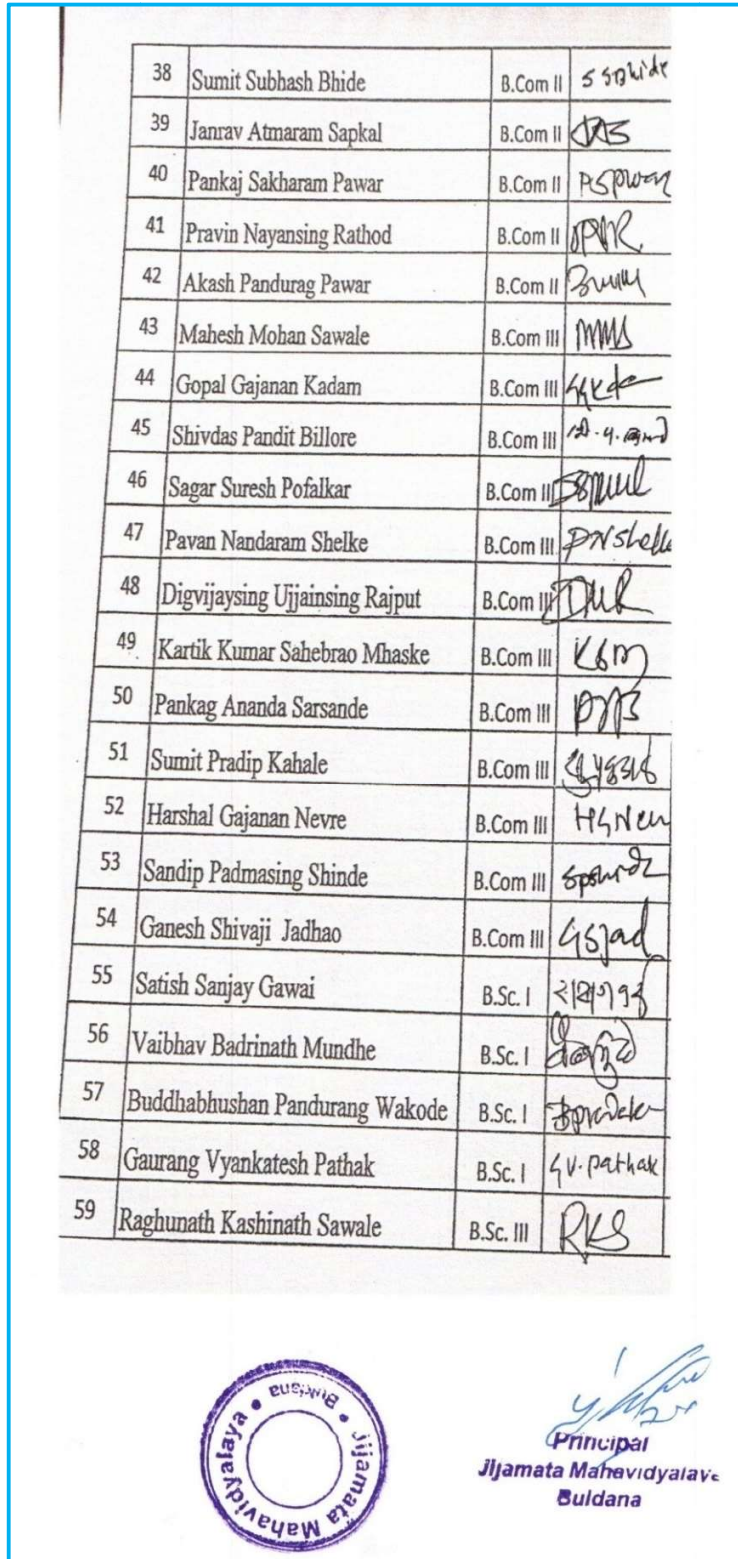 38 Sumit Subhash Bhide B.Com II S S Bhide
39 Janrav Atmaram Sapkal B.Com II
40 Pankaj Sakharam Pawar B.Com II
41 Pravin Nayansing Rathod B.Com II
42 Akash Pandurag Pawar B.Com II
43 Mahesh Mohan Sawale B.Com III MMS
44 Gopal Gajanan Kadam B.Com III
45 Shivdas Pandit Billore B.Com III
46 Sagar Suresh Pofalkar B.Com III
47 Pavan Nandaram Shelke B.Com III PNShelke
48 Digvijaysing Ujjainsing Rajput B.Com III
49 Kartik Kumar Sahebrao Mhaske B.Com III KSM
50 Pankag Ananda Sarsande B.Com III
51 Sumit Pradip Kahale B.Com III
52 Harshal Gajanan Nevre B.Com III
53 Sandip Padmasing Shinde B.Com III
54 Ganesh Shivaji Jadhao B.Com III GSJad
55 Satish Sanjay Gawai B.Sc. I
56 Vaibhav Badrinath Mundhe B.Sc. I
57 Buddhabhushan Pandurang Wakode B.Sc. I
58 Gaurang Vyankatesh Pathak B.Sc. I G.V. Pathak
59 Raghunath Kashinath Sawale B.Sc. III RKS
Jijamata Mahavidyalaya • Buldana •
Principal
Jijamata Mahavidyalaya
Buldana